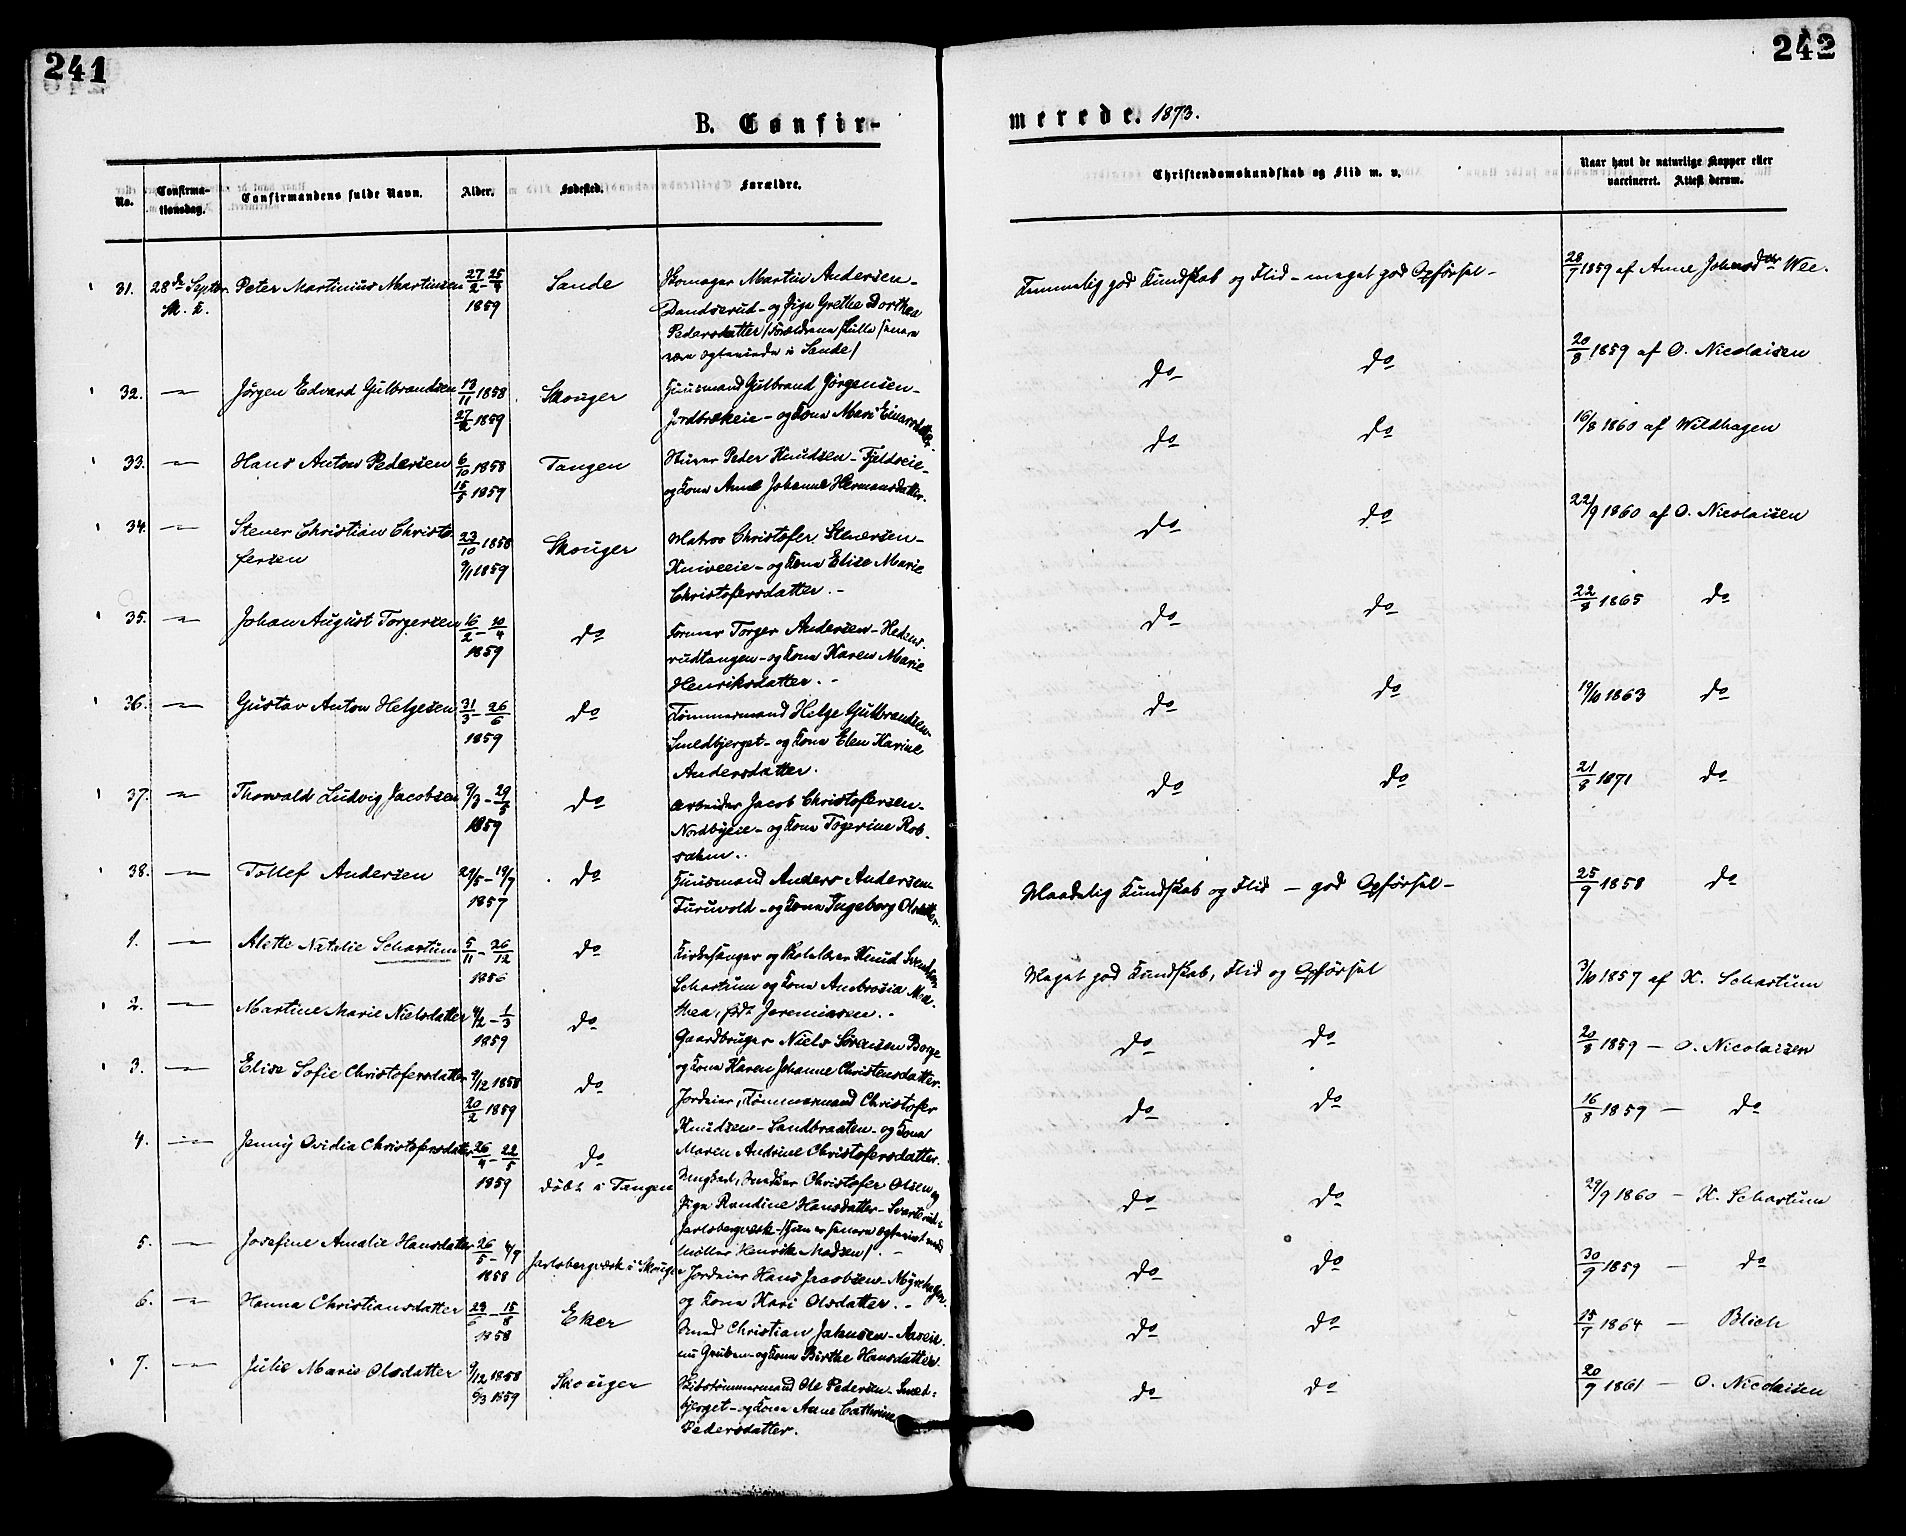 241
242
B. Confir-
merede. 1873.
No.
Confirma-
tionsdag.
Confirmandens fulde Navn.
Alder.
Fødested.
Forældre.
Christendomskundskab og Flid m. v.
Naar havt de naturlige Kopper eller
vaccineret. Attest derom.
31. 28de Septbr. Peter Martinius Martinsen 27/2 - 25/4 1859 Sande
Skomager Martin Andersen -
- og Pige Grethe Dorthea
Pedersdatter /Forældrene skulle senere
være ægteviede i Sande/
Temmelig god Kundskab og Flid - meget god Opførsel -
28/7 1859 af Anne Johnsdtr Wee.
32. -"- Jørgen Edvard Gulbrandsen 13/11 1858 27/2 1859 Skouger
Huusmand Gulbrand Jørgensen -
Jordbrekeie - og Kone Mari Einarsdatter.
do do
20/8 1859 af O. Nicolaisen
33. -"- Hans Anton Pedersen 6/10 1858 15/5 1859 Tangen
Peder Knudsen - Fjeldeie -
og Kone Anne Johanne Hermansdatter.
do do
16/8 1860 af Wildhagen
34. -"- Stener Christian Christo-
fersen 23/10 1858 9/1 1859 Skouger
Matros Christofer Stenersen -
Kniveeie - og Kone Elise Marie
Christofersdatter. -
do do
22/9 1860 af O. Nicolaisen
35. -"- Johan August Torgersen 16/2 - 30/4 1859 do
Former Torger Andersen - Hedens-
rudtangen - og Kone Karen Marie
Henriksdatter. -
do do
22/8 1865 do
36. -"- Gustav Anton Helgesen 31/3 - 26/6 1859 do
Tømmermand Helge Gulbrandsen -
Smedbjerget - og Kone Elen Karine
Andersdatter.
do do
19/10 1863 do
37. -"- Thorvald Ludvig Jacobsen 9/3 - 29/5 1859 do
Arbeider Jacob Christofersen -
Nordbyeie - og Kone Togerine Rob-
sahm.
do do
21/8 1871 do
38. -"- Tollef Andersen 29/5 - 19/7 1857 do
Huusmand Anders Andersen -
Furuvold - og Kone Ingeborg Olsdatter.
Maadelig Kundskab og Flid - god Opførsel -
25/9 1858 do
1. -"- Alette Natalie Schartum 5/11 - 26/12 1856 do
Kirkesanger og Skolelærer Knud Svendsen
Schartum og Kone Ambrosia Ma-
thea, født Jeremiasen. -
Meget god Kundskab, Flid og Opførsel
3/10 1857 af K. Schartum
2. -"- Martine Marie Nielsdatter 4/2 - 1/3 1859 do
Gaardbruger Niels Sørensen Borge
og Kone Karen Johanne Christensdatter.
do do
20/8 1859 - O. Nicolaisen
3. -"- Elise Sofie Christofersdatter 9/12 1858 20/2 1859 do
Jordeier, Tømmermand Christofer
Knudsen - Sandbraaten - og Kone
Maren Andrine Christofersdatter.
do do
16/8 1859 - do
4. -"- Jenny Ovidia Christofersdatter 26/4 - 22/5 1859 do
døbt i Tangen
Ungkarl, Christofer Olsen og
Pige Randine Hansdatter -
Jarlsbergværk - /Hun er senere ægteviet med
Møller Henrik Madsen/. -
do do
29/9 1860 - K. Schartum
5. -"- Josefine Amalie Hansdatter 26/5 - 4/9 1858 Jarlsbergværk i Skouger
Jordeier Hans Jacobsen - Myrehagen
og Kone Kari Olsdatter. -
do do
30/9 1859 - do
6. -"- Hanna Christiansdatter 29/6 - 15/8 1858 Eker
Smed Christian Johnsen - Aaseie
- og Kone Birthe Hansdatter.
do do
15/9 1864 - Blich
7. -"- Julie Marie Olsdatter 9/12 1858 6/3 1859 Skouger
Skibstømmermand Ole Pedersen - Smed-
bjerget - og Kone Anne Cathrine
Pedersdatter.
do do
20/9 1861 - O. Nicolaisen